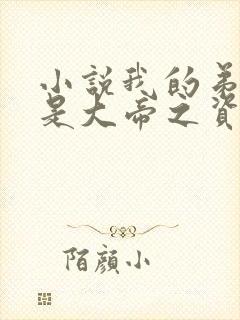 小說我的弟
是大帝之資
陌顔小